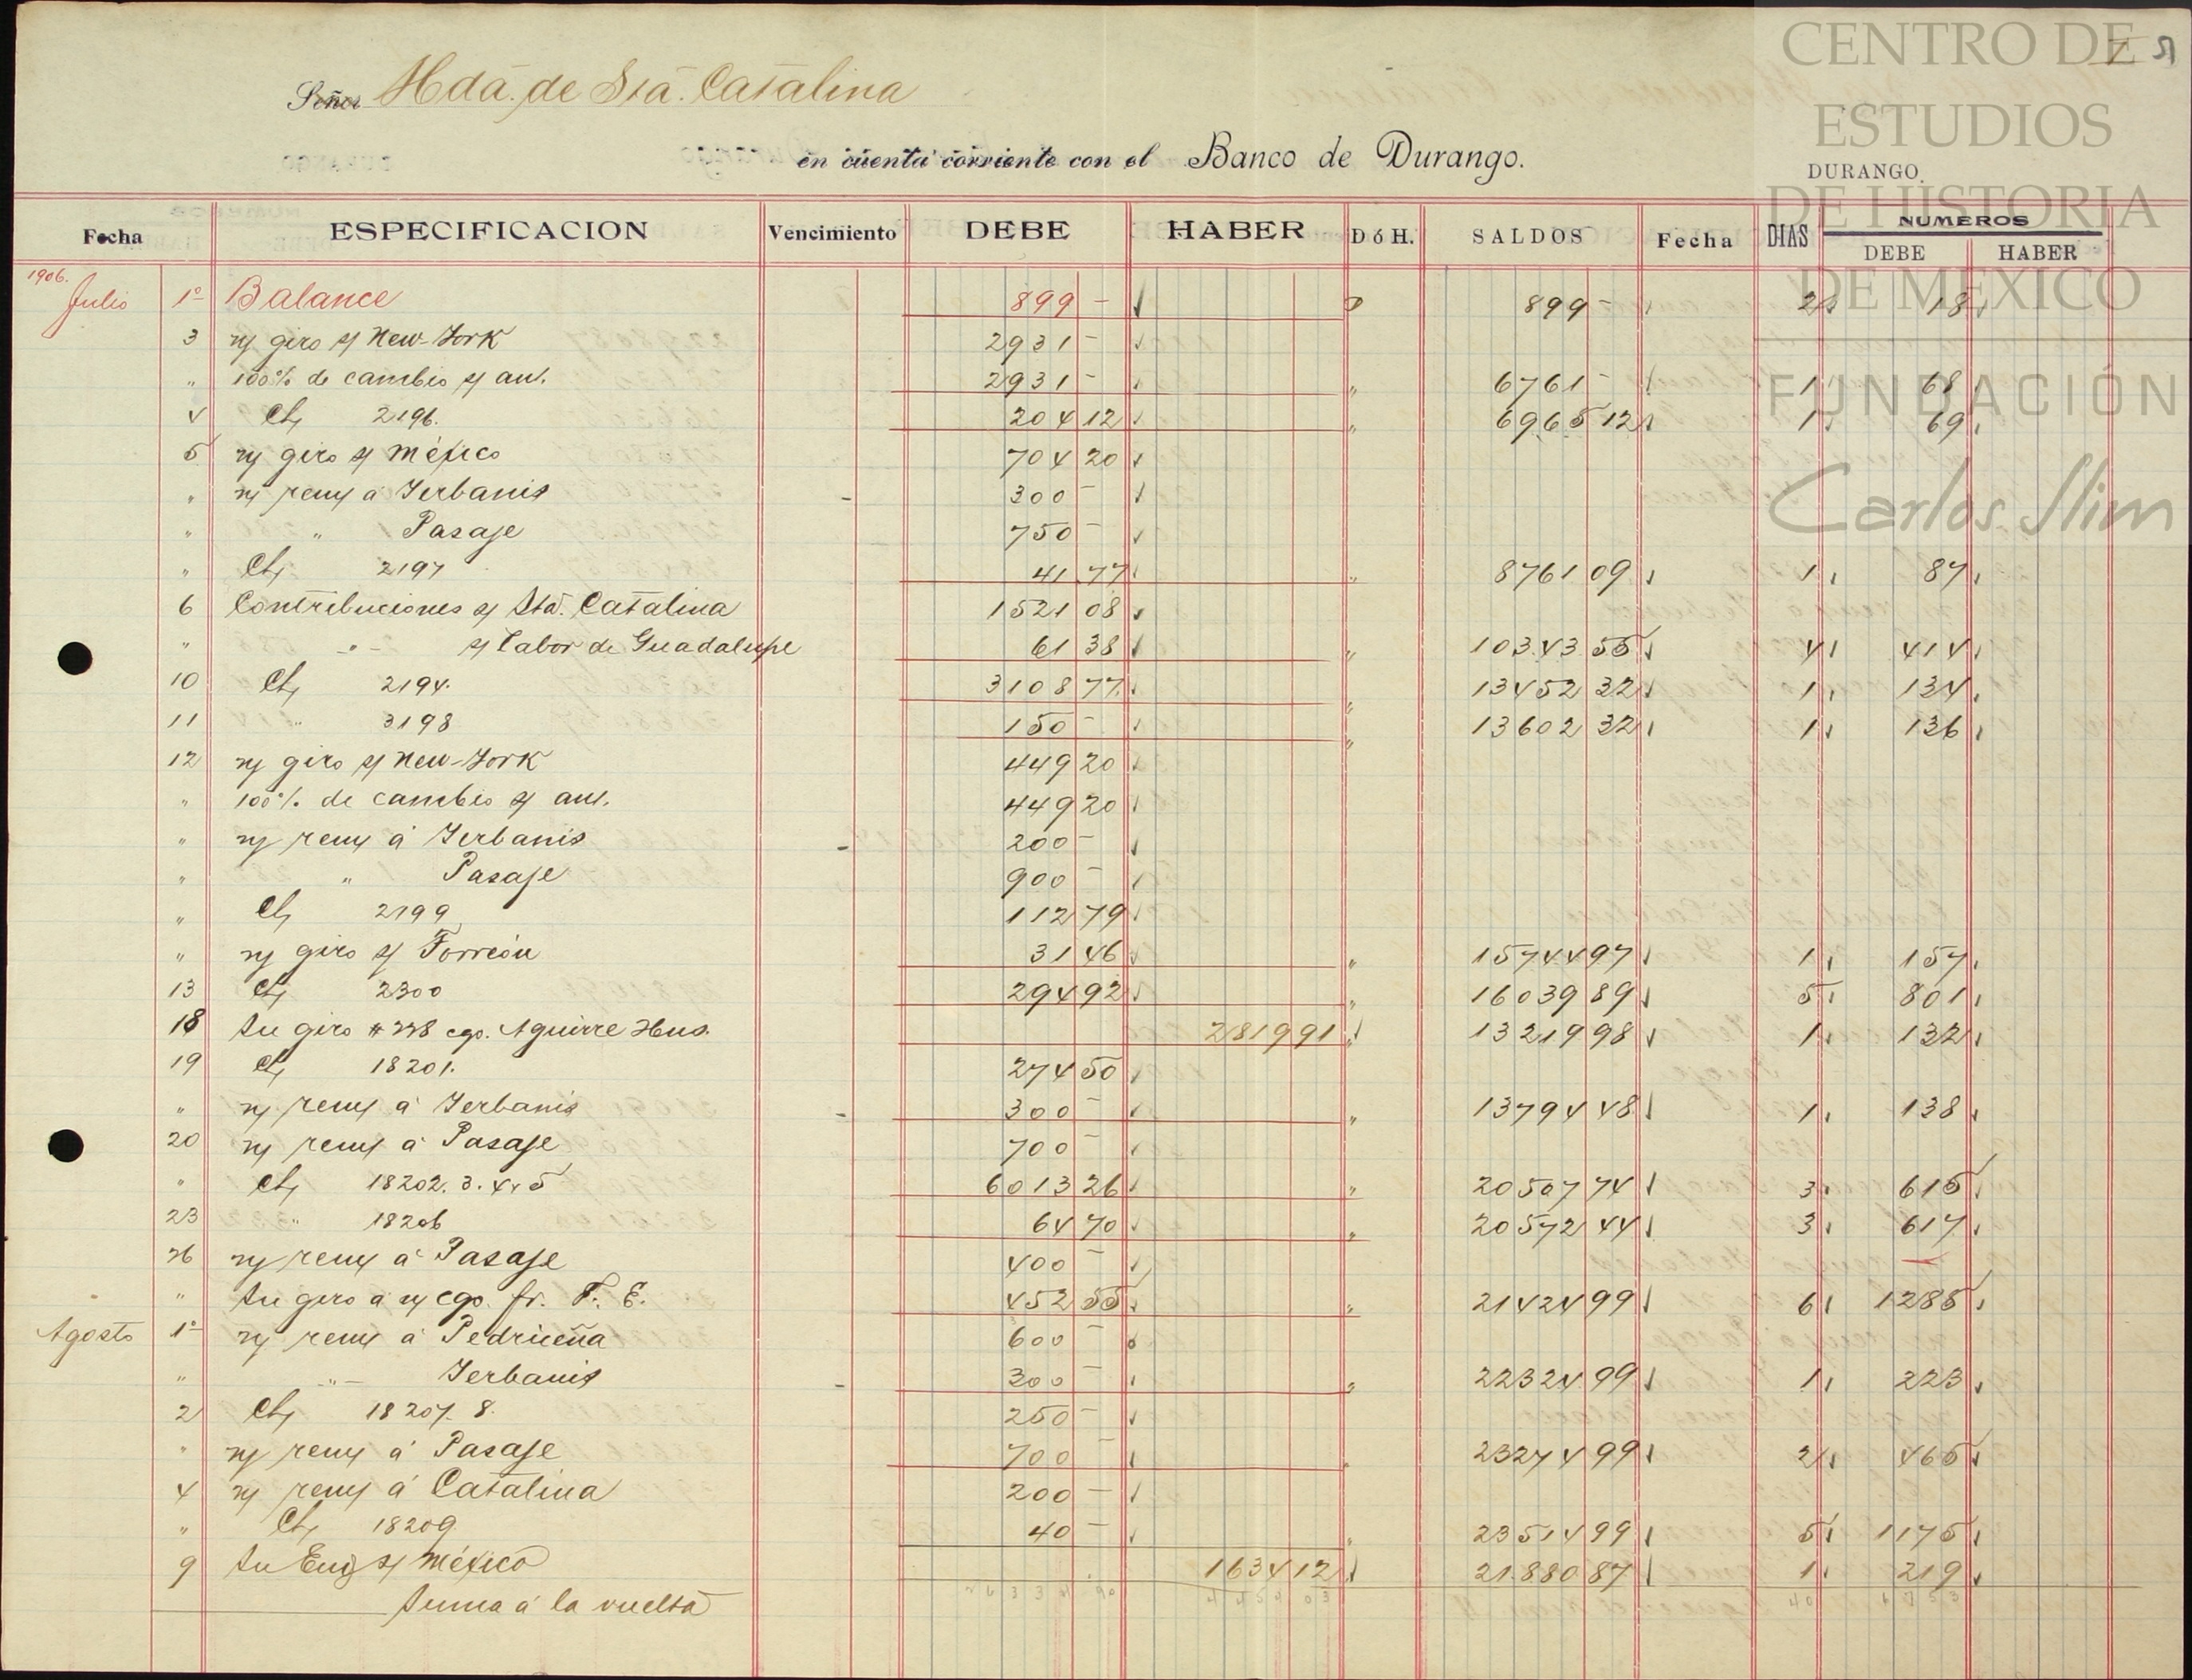 CENTRO DE
ESTUDIOS
DE HISTORIA
DE MEXICO
FUNDACIÓN
Carlos Slim
Señor Hda. de Sta. Catalina
en cuenta corriente con el Banco de Durango.
DURANGO,
Fecha ESPECIFICACION Vencimiento DEBE HABER D ó H. SALDOS Fecha DIAS NUMEROS
DEBE HABER
1906.
Julio 1º Balance 899 – D 899 – 2 18
3 n/ giro s/ New-York 2931 –
" 100% de cambio s/ ant. 2931 – " 6761 – 1 68
4 Ch/ 2196. 204 12 " 6965 12 1 69
5 n/ giro s/ México 704 20
" n/ rem/ á Yerbanis 300 –
" " Pasaje 750 –
" Ch/ 2197 41 77 " 8761 09 1 87
6 Contribuciones s/ Sta. Catalina 1521 08
" - " - s/ Labor de Guadalupe 61 38 " 10343 55 4 414
10 Ch/ 2194. 3108 77 " 13452 32 1 134
11 " 3198 150 – " 13602 32 1 136
12 n/ giro s/ New-York 449 20
" 100% de cambio s/ ant. 449 20
" n/ rem/ á Yerbanis 200 –
" " Pasaje 900 –
" Ch/ 2199 112 79
" n/ giro s/ Torreón 31 46 " 15744 97 1 157
13 Ch/ 2300 294 92 " 16039 89 5 801
18 Su giro # 228 cgo. Aguirre Hnos. 2819 91 " 13219 98 1 132
19 Ch/ 18201. 274 50
" n/ rem/ á Yerbanis 300 – " 13794 48 1 138
20 n/ rem/ á Pasaje 700 –
" Ch/ 18202. 3. 4 y 5 6013 26 " 20507 74 3 615
23 " 18206 64 70 " 20572 44 3 617
26 n/ rem/ á Pasaje 400 –
" Su giro á n/ cgo. fr. F. E. 452 55 " 21424 99 6 1285
Agosto 1º n/ rem/ á Pedriceña 600 –
" - " - Yerbanis 300 – " 22324 99 1 223
2 Ch/ 18207. 8. 250 –
" n/ rem/ á Pasaje 700 – " 23274 99 2 465
4 n/ rem/ á Catalina 200 –
" Ch/ 18209 40 – " 23514 99 5 1175
9 Su s/ México 1634 12 21880 87 1 219
Suma á la vuelta 4454 03 40